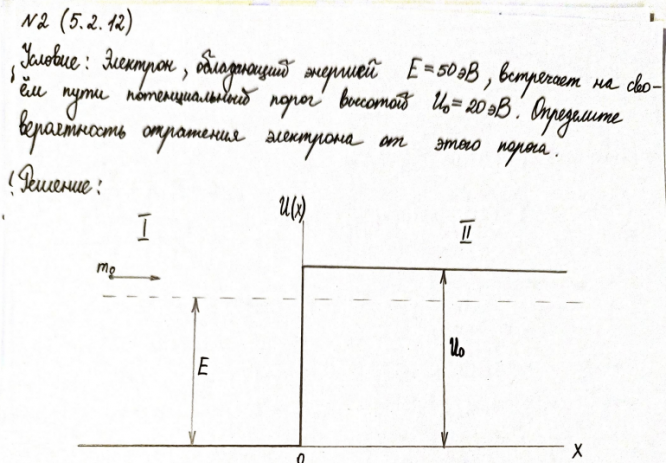 N2 (5.2.12)
Условие: Электрон, обладающий энергией E = 50 эВ, встречает на сво-
ём пути потенциальный порог высотой U₀ = 20 эВ. Определите
вероятность отражения электрона от этого порога.
Решение:
U(x)
I II
m₀
E U₀
0 X